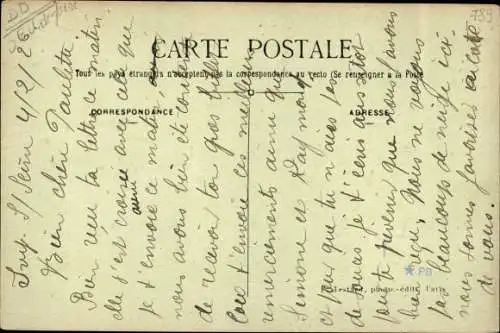 CARTE POSTALE
Tous les pays étrangers n'acceptent pas la correspondance au recto (Se renseigner à la Poste
CORRESPONDANCE
ADRESSE
Ivry s/ Seine 4/2/26
Bien chère Paulette
Bien reçu ta lettre ce matin
elle s'est croisée avec celle que
je t'envoie ce matin
nous avons bien été contents
de recevoir ton gros
t'envoie ses meilleurs
remerciements ainsi que
Simone et Raymond
et pour que tu n'aies pas
de je t'écris aussitôt
pour te prévenir que nous l'avons
bien reçu, Nous ne voyons
pas beaucoup de neige ici
nous sommes favorisés à côté
de vous.
photo-édit, Paris
PB
789